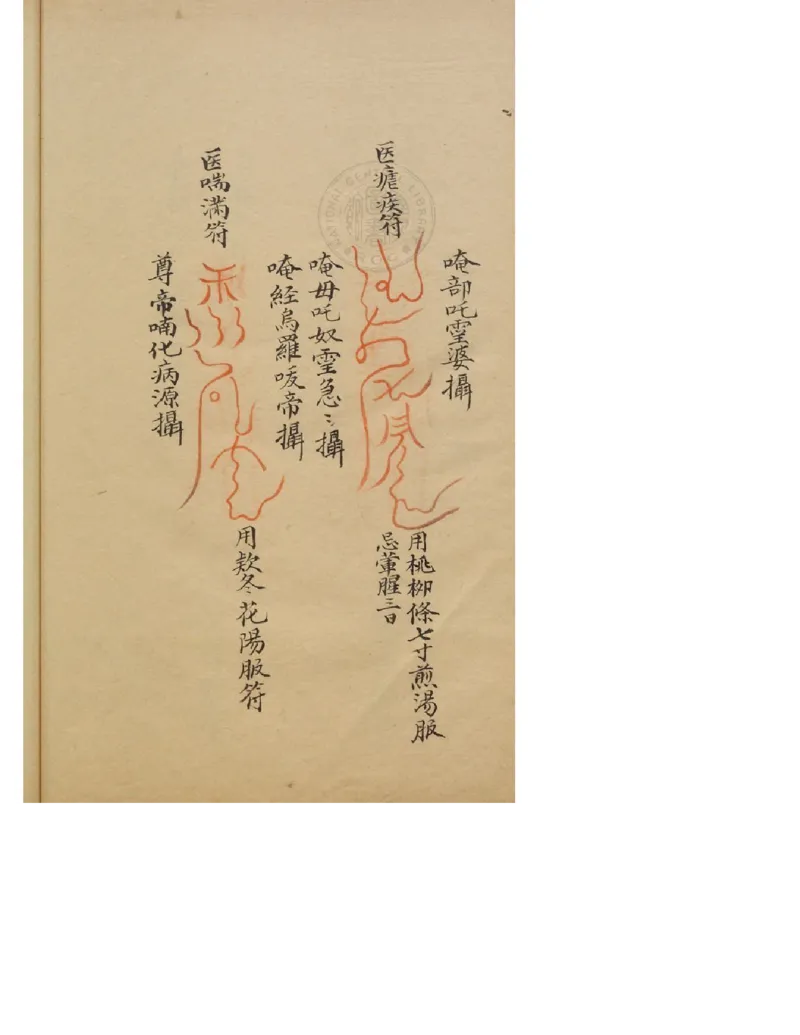 唵部吒霊婆攝
医瘧疾符
用桃柳條七寸煎湯服
忌葷腥三日
唵毋吒奴霊急〻攝
唵経烏羅喛帝攝
医喘滿符
用欵冬花陽服符
尊帝喃化病源攝
NATIONAL CENTRAL LIBRARY